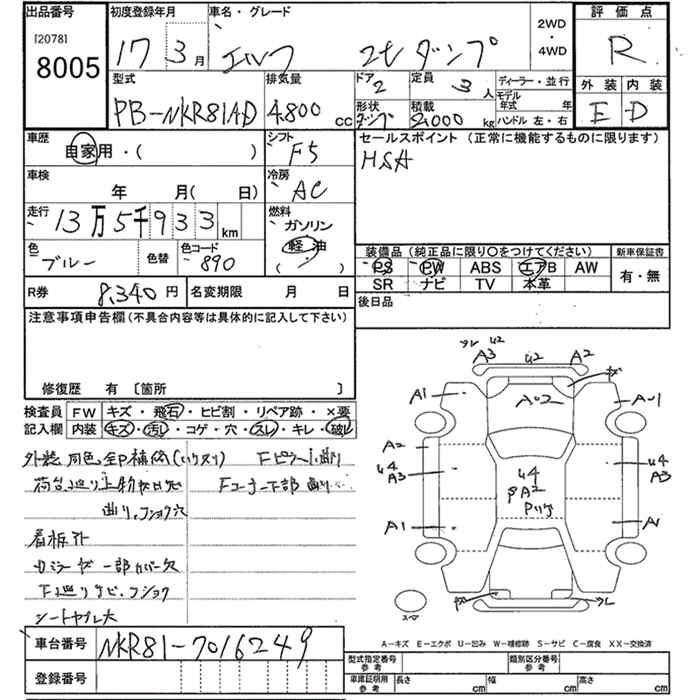 出品番号
[2078]
8005
初度登録年月
17 3月
車名・グレード
エルフ 2t ダンプ
2WD
・
4WD
評価点
R
外装 内装
E D
型式
PB-NKR81AD
排気量
4,800 CC
ドア
2
定員
3人
形状
ダンプ
積載
2,000 kg
ディーラー・並行
モデル年式 年
ハンドル 左・右
車歴
自家用・( )
シフト
F5
セールスポイント (正常に機能するものに限ります)
HSA
車検
年 月( 日)
冷房
AC
走行
13万5千933km
燃料
ガソリン
軽油
( )
色
ブルー
色替
色コード
890
装備品(純正品に限り〇をつけてください)
PS PW ABS エアB AW
SR ナビ TV 本革
新車保証書
有・無
R券 8,340円
名変期限 月 日
後日品
注意事項申告欄(不具合内容等は具体的に記入して下さい)
修復歴 有〔箇所 〕
検査員記入欄
FW キズ・飛石・ヒビ割・リペア跡・×要
内装 キズ・汚レ・コゲ・穴・スレ・キレ・破レ
外装 同色全P補修
荷台廻り
曲り
看板跡
下廻りサビ
U2
A3 U2 A2
A1 AU2 AU1
A2
U4
A3
U4
A2
U4
A3
A1 A1
スペア
A-キズ E-エクボ U-凹み W-補修跡 S-サビ C-腐食 XX-交換済
車台番号 NKR81-7016249
登録番号
型式指定番号 参考
類別区分番号 参考
車庫証明用 参考 長さ cm 幅 cm 高さ cm